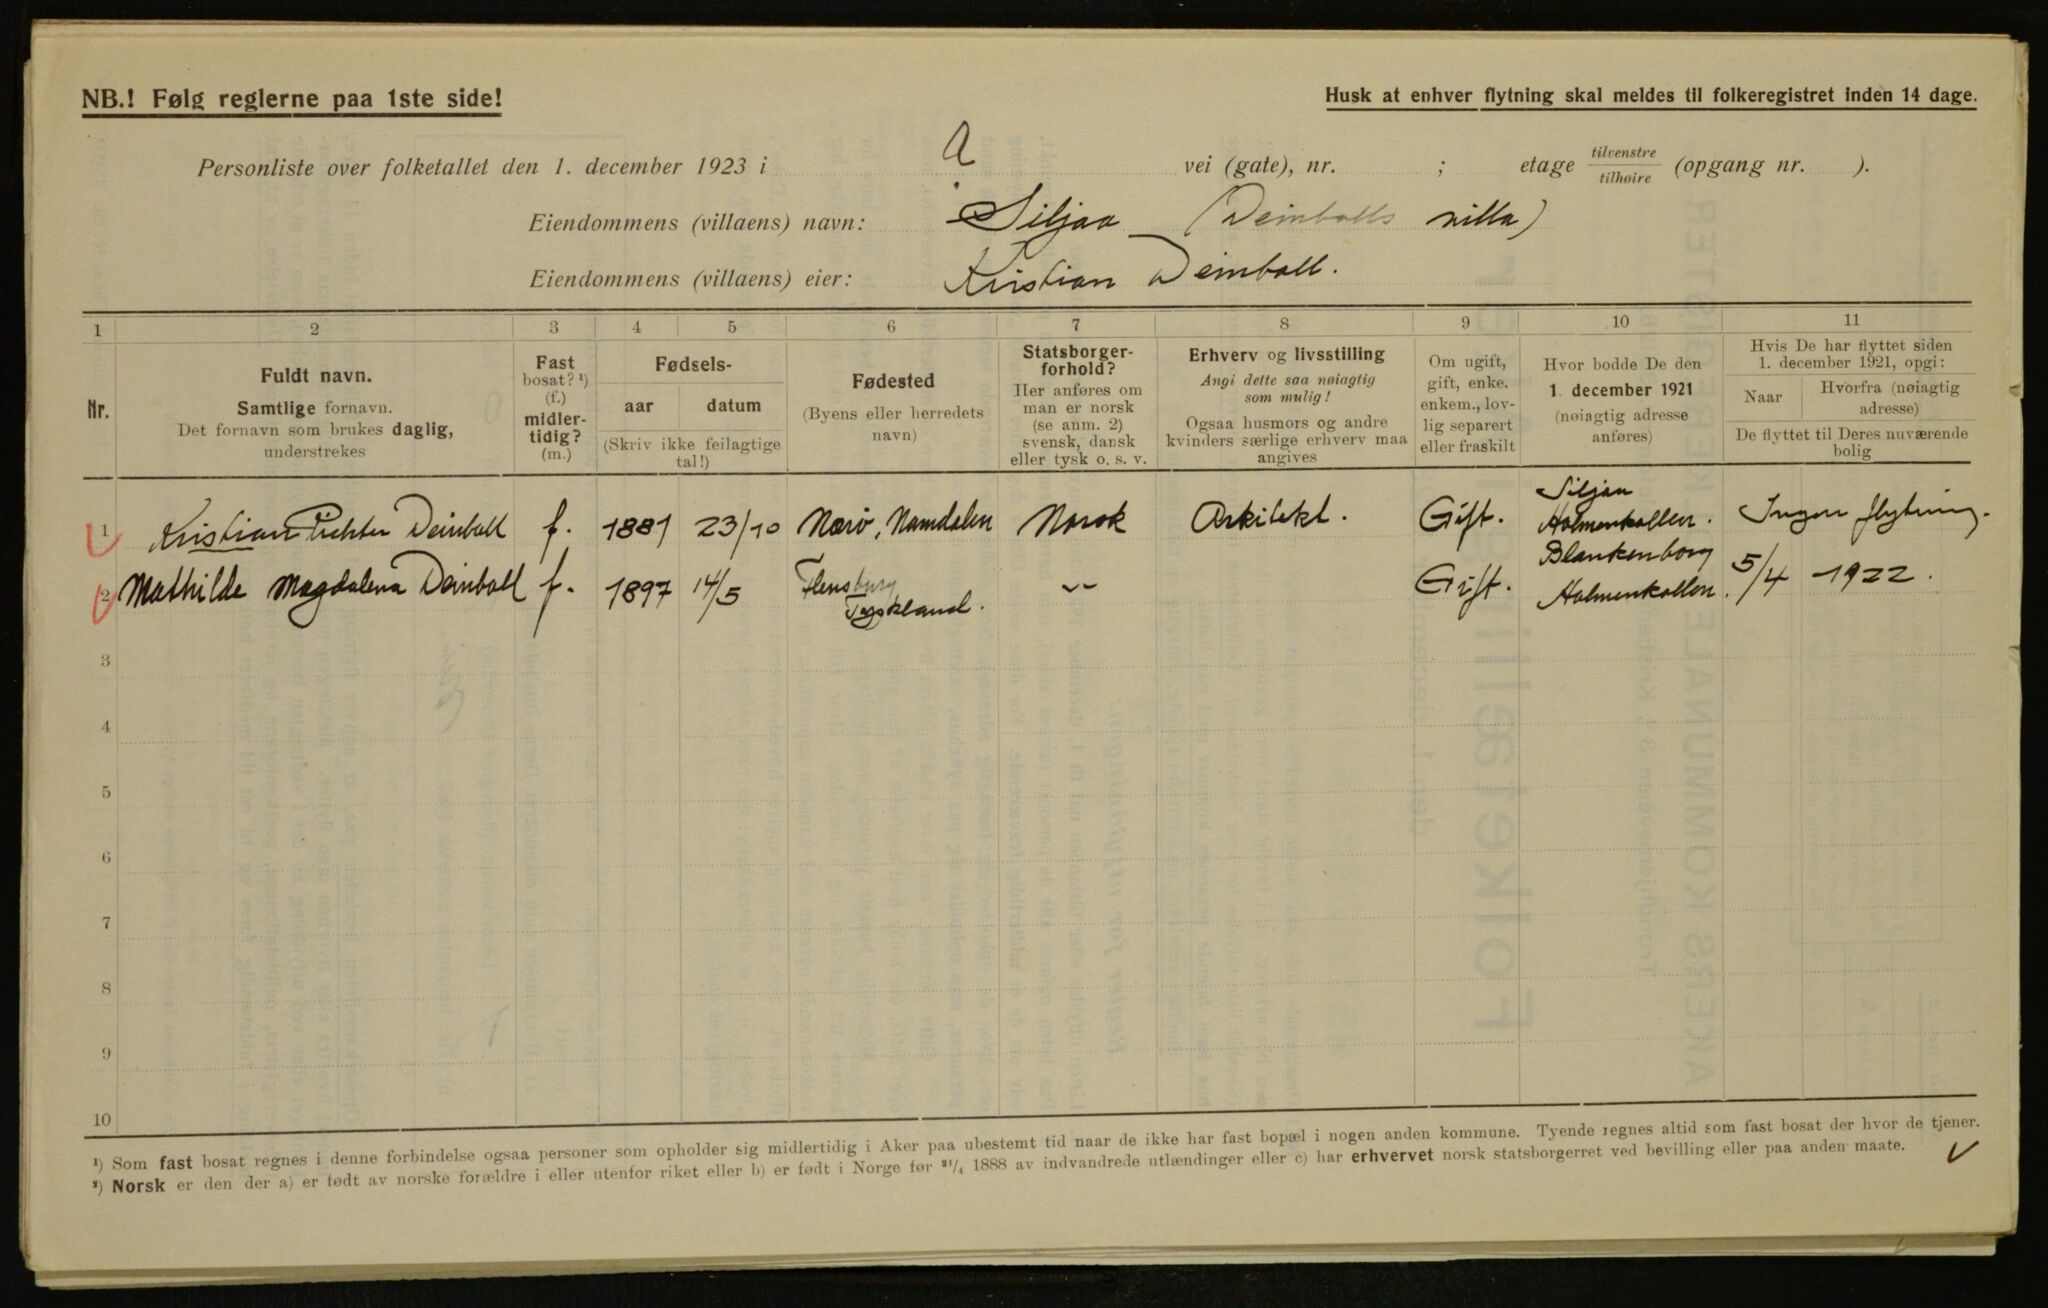 NB.! Følg reglerne paa 1ste side!
Husk at enhver flytning skal meldes til folkeregistret inden 14 dage.
a
Personliste over folketallet den 1. december 1923 i vei (gate), nr. ; etage tilvenstre tilhøire (opgang nr. ).
Eiendommens (villaens) navn: Siljaa (Deinbolls villa)
Eiendommens (villaens) eier: Kristian Deinboll.
1 2 3 4 5 6 7 8 9 10 11
Nr.
Fuldt navn.
Samtlige fornavn.
Det fornavn som brukes daglig,
understrekes
Fast
bosat? ¹)
(f.)
midler-
tidig?
(m.)
Fødsels-
aar datum
(Skriv ikke feilagtige
tal!)
Fødested
(Byens eller herredets
navn)
Statsborger-
forhold?
Her anføres om
man er norsk
(se anm. 2)
svensk, dansk
eller tysk o. s. v.
Erhverv og livsstilling
Angi dette saa nøiagtig
som mulig!
Ogsaa husmors og andre
kvinders særlige erhverv maa
angives
Om ugift,
gift, enke.
enkem., lov-
lig separert
eller fraskilt
Hvor bodde De den
1. december 1921
(nøiagtig adresse
anføres)
Hvis De har flyttet siden
1. december 1921, opgi:
Naar
Hvorfra (nøiagtig
adresse)
De flyttet til Deres nuværende
bolig
1 Kristian Deinboll f. 1881 23/10 Nærö, Namdalen Norsk Arkitekt. Gift. Siljaa Holmenkollen. Ingen flytning.
2 Mathilde Magdalena Deinboll f. 1897 14/5 Flensburg Tyskland. -"- Gift. Blankenborg Holmenkollen. 5/4 - 1922.
3
4
5
6
7
8
9
10
¹) Som fast bosat regnes i denne forbindelse ogsaa personer som opholder sig midlertidig i Aker paa ubestemt tid naar de ikke har fast bopæl i nogen anden kommune. Tyende regnes altid som fast bosat der hvor de tjener.
²) Norsk er den der a) er født av norske forældre i eller utenfor riket eller b) er født i Norge før ²¹/₄ 1888 av indvandrede utlændinger eller c) har erhvervet norsk statsborgerret ved bevilling eller paa anden maate.